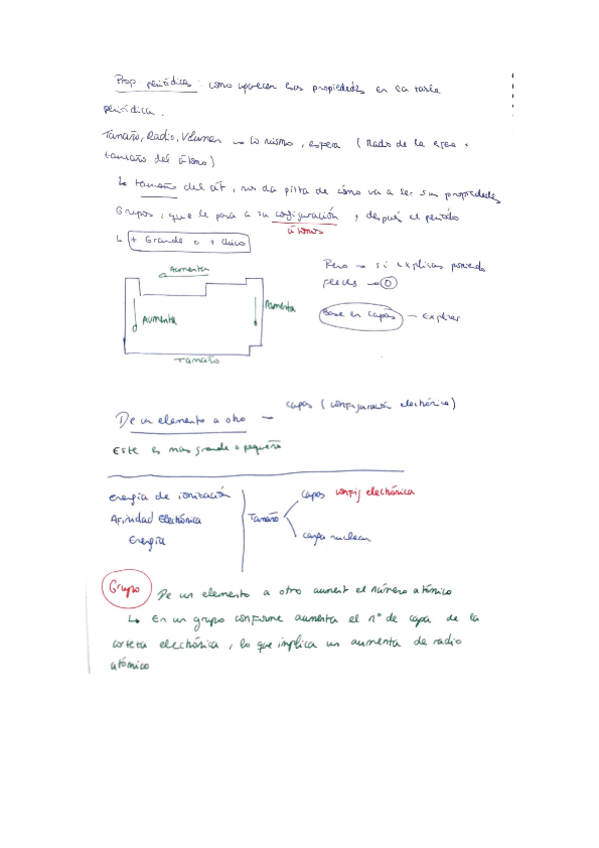 Prop periódicas: como aparecen las propiedades en la tabla
periódica.
Tamaño, Radio, Volumen → lo mismo, esfera (Radio de la esfera =
tamaño del átomo)
↳ tamaño del át, nos da pista de cómo va a ser sus propiedades
Grupos, que le pasa a su configuración, y después el período
átomos
↳ + Grande o + chico
Aumenta
Pero → si explicas poniendo
flechas → 0
Aumenta
Aumenta
Base en capas — explicar
Tamaño
De un elemento a otro — capas (configuración electrónica)
Este es mas grande o pequeño
Energía de ionización
Afinidad Electrónica
Energía
Tamaño
capas config electrónica
carga nuclear
Grupo De un elemento a otro aument el número atómico
↳ En un grupo conforme aumenta el nº de capa de la
corteza electrónica, lo que implica un aumento de radio
atómico